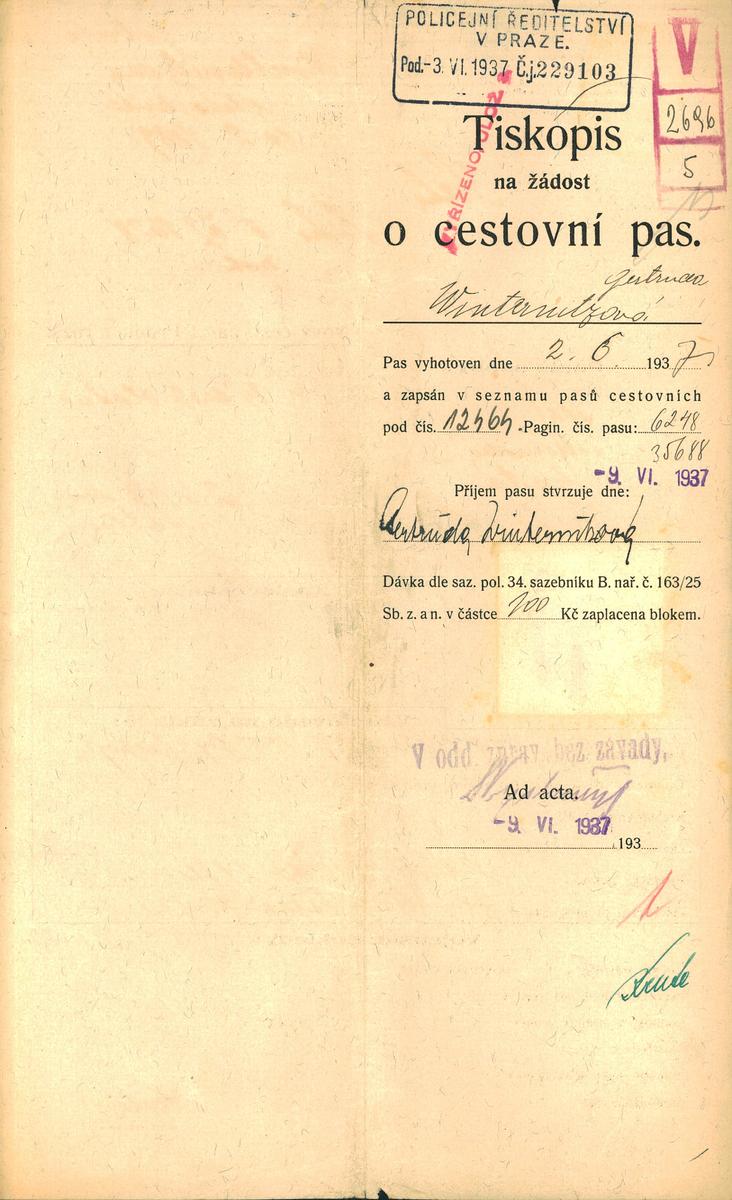 POLICEJNÍ ŘEDITELSTVÍ
V PRAZE.
Pod.-3. VI. 1937 Č.j. 229103
V
2696
5
VYŘÍZENO, ULOŽ
Tiskopis
na žádost
o cestovní pas.
Gertruda
Winternitzová
Pas vyhotoven dne 2. 6. 1937
a zapsán v seznamu pasů cestovních
pod čís. 12464 . Pagin. čís. pasu: 6248
35688
-9. VI. 1937
Příjem pasu stvrzuje dne:
Gertruda Winternitzová
Dávka dle saz. pol. 34. sazebníku B. nař. č. 163/25
Sb. z. a n. v částce 200 Kč zaplacena blokem.
V odd. zpráv. bez závady,
Ad acta.
-9. VI. 1937
193